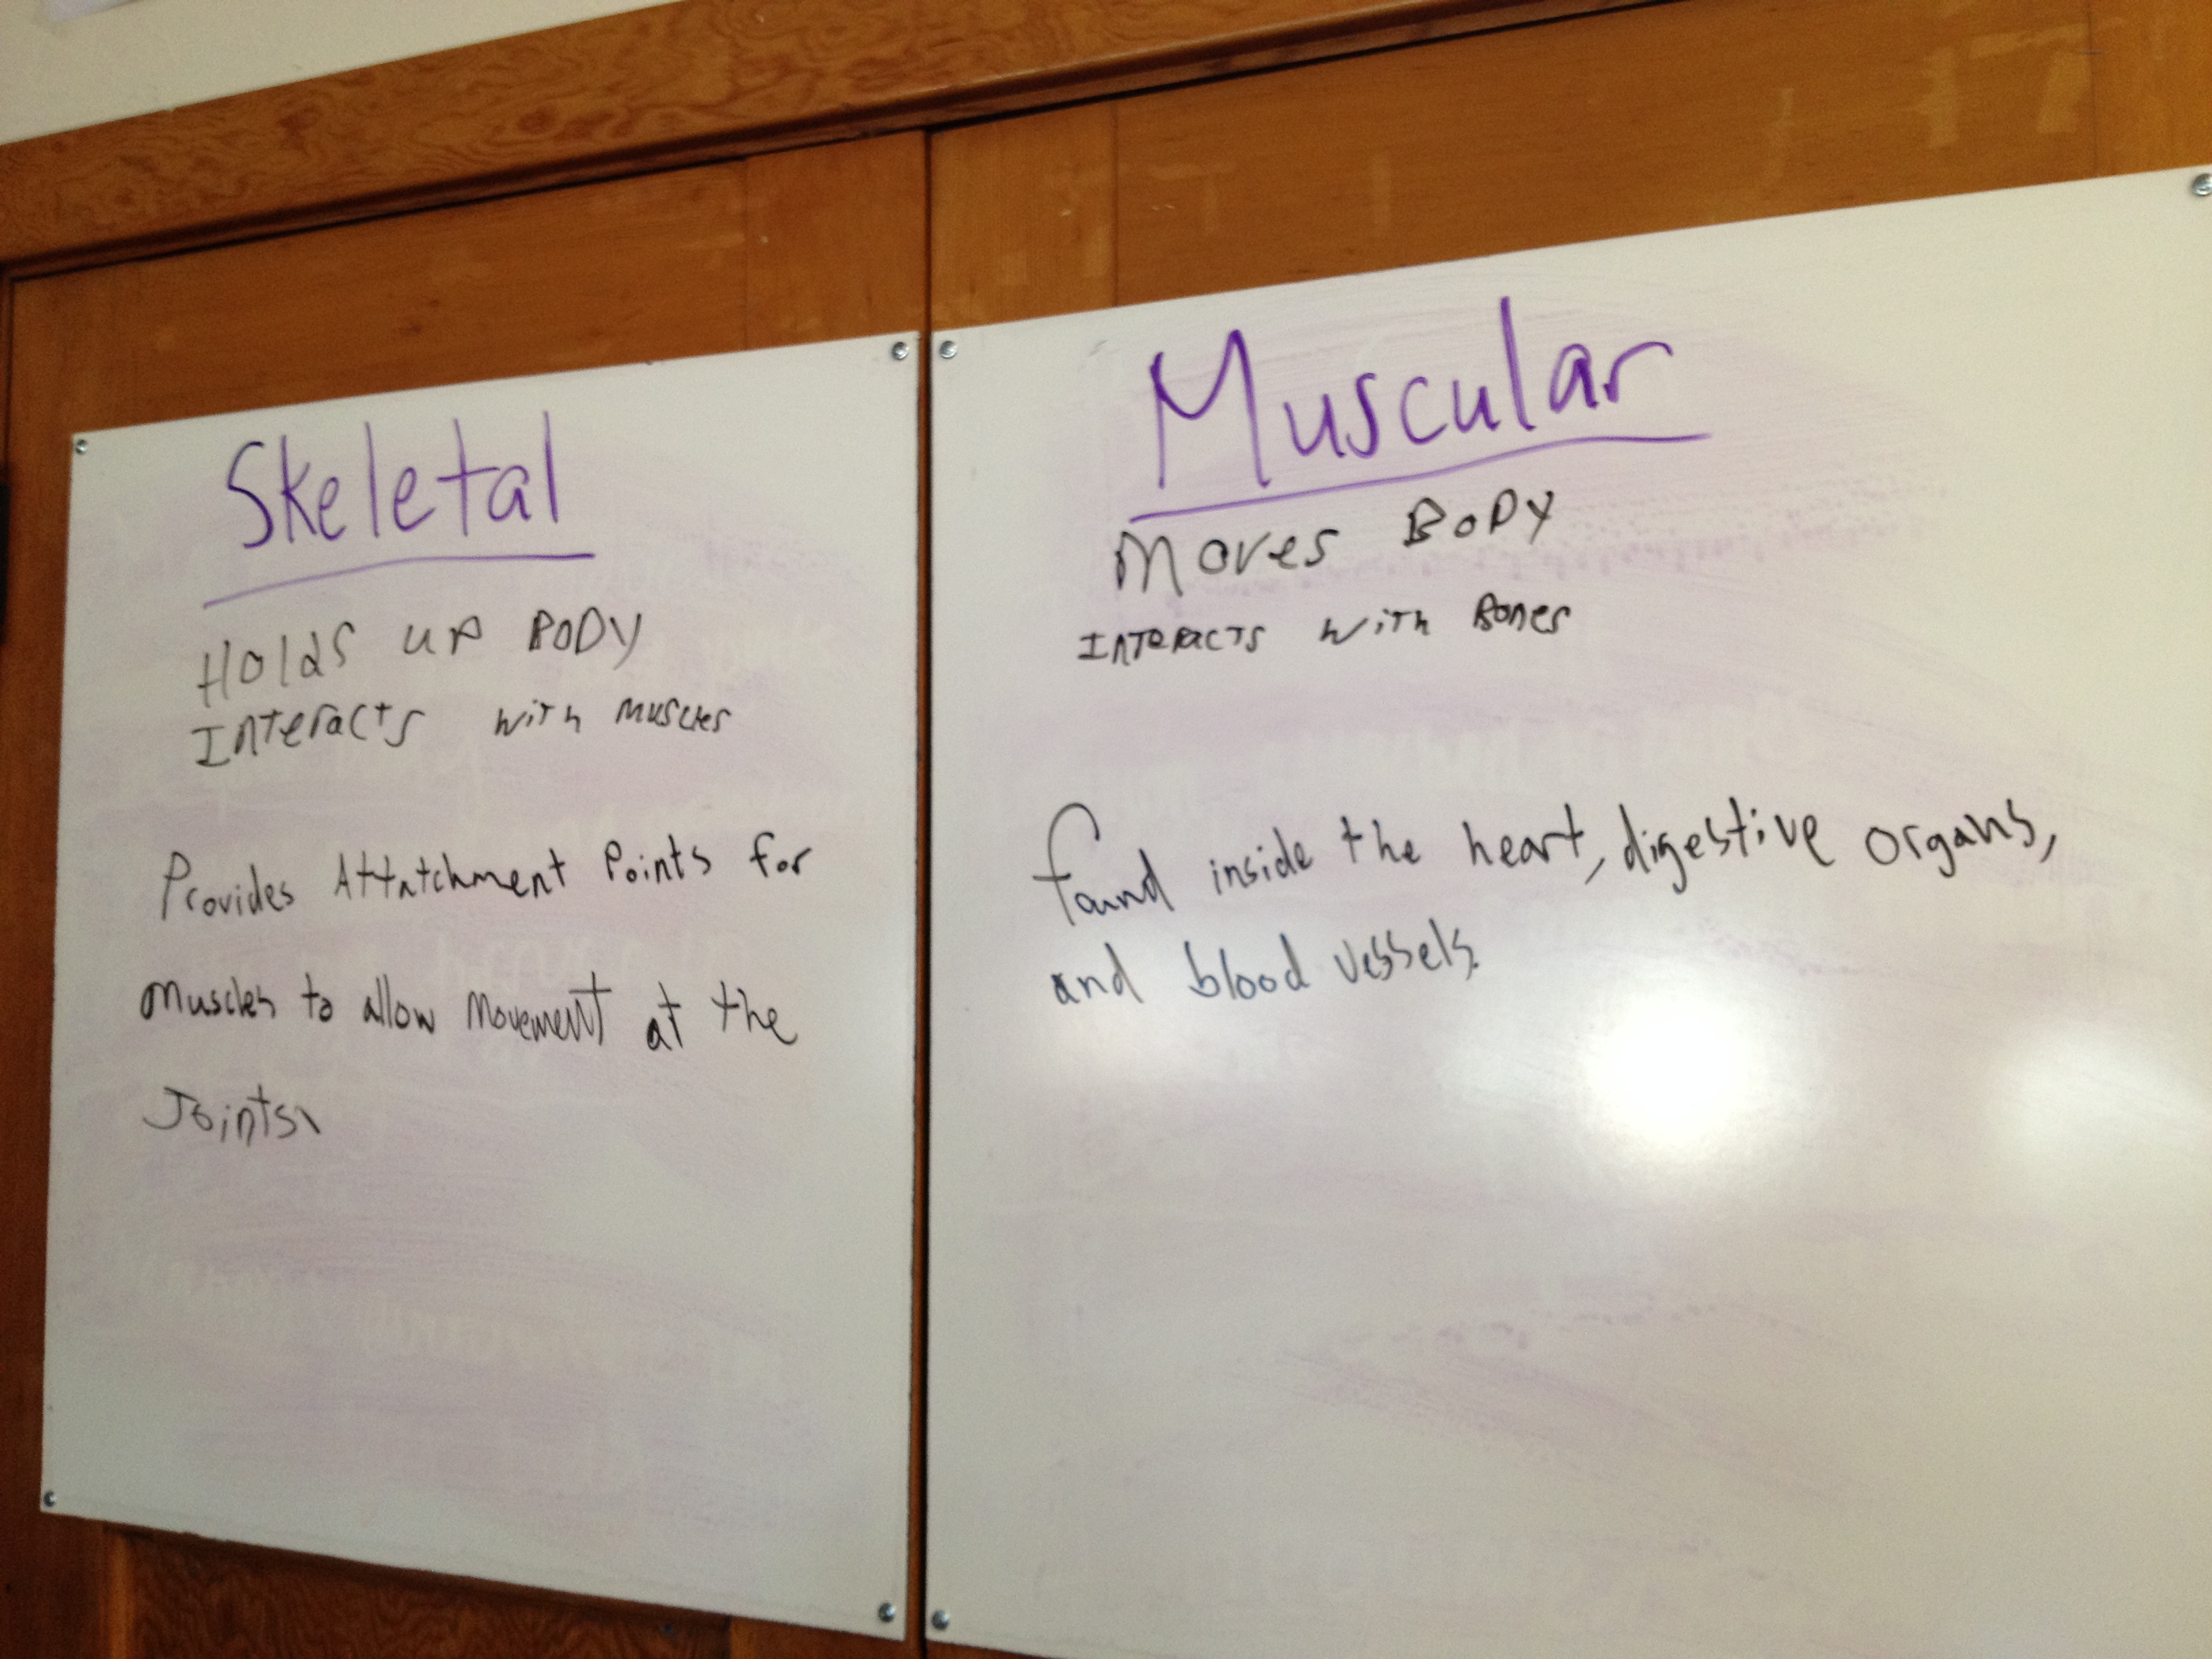 Skeletal
HOldS UP BODY
INTeracts with Muscles
Provides Attatchment Points for
Muscles to allow Movement at the
Joints.
Muscular
Moves BoDy
INTERACTS with Bones
found inside the heart, digestive organs,
and blood vessels.